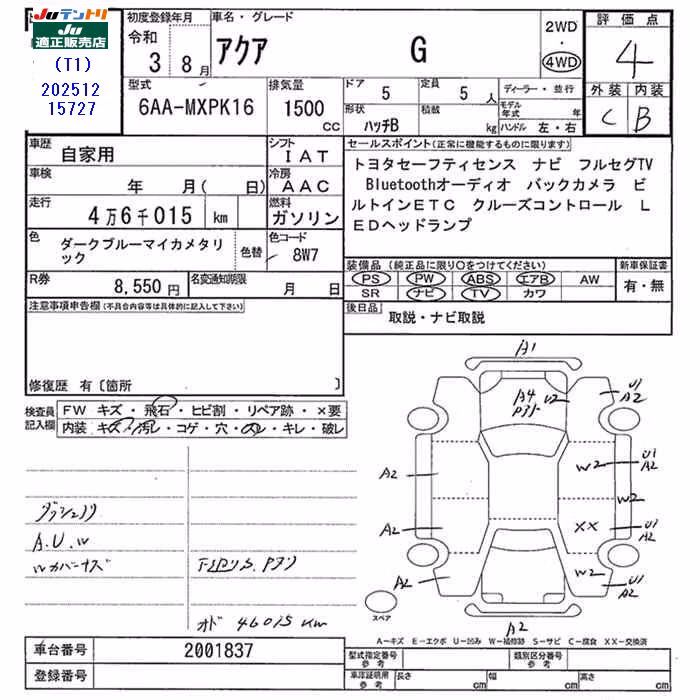 JUテントリ
適正販売店
(T1)
202512
15727
初度登録年月
令和
3 8月
車名・グレード
アクア G
2WD
・
4WD
評価点
4
型式
6AA-MXPK16
排気量
1500
cc
ドア 5
定員 5 人
形状
ハッチB
積載
kg
ディーラー・並行
モデル
年式 年
ハンドル 左・右
外装 内装
C B
車歴
自家用
シフト
IAT
車検
年 月( 日)
冷房
AAC
走行
4万6千015 km
燃料
ガソリン
色
ダークブルーマイカメタリ
ック
色替
色コード
8W7
R券
8,550円
名変通知期限
月 日
セールスポイント(正常に機能するものに限ります)
トヨタセーフティセンス ナビ フルセグTV
Bluetoothオーディオ バックカメラ ビ
ルトインETC クルーズコントロール L
EDヘッドランプ
装備品 (純正品に限り○をつけてください)
PS PW ABS エアB AW
SR ナビ TV カワ
新車保証書
有・無
後日品
取説・ナビ取説
注意事項申告欄 (不具合内容等は具体的に記入して下さい)
修復歴 有〔箇所 〕
検査員
記入欄
FW キズ・飛石・ヒビ割・リペア跡・×要
内装 キズ・汚レ・コゲ・穴・スレ・キレ・破レ
A.U.W
オド 46015 km
A1
A4
W2
U1
A2
A2
W2
U1
A2
W2
A2
XX
U1
A2
A2
W2
U1
A2
A2
スペア
A-キズ E-エクボ U-凹み W-補修跡 S-サビ C-腐食 XX-交換済
車台番号
2001837
登録番号
型式指定番号
参考
類別区分番号
参考
車庫証明用
参考
長さ cm
幅 cm
高さ cm